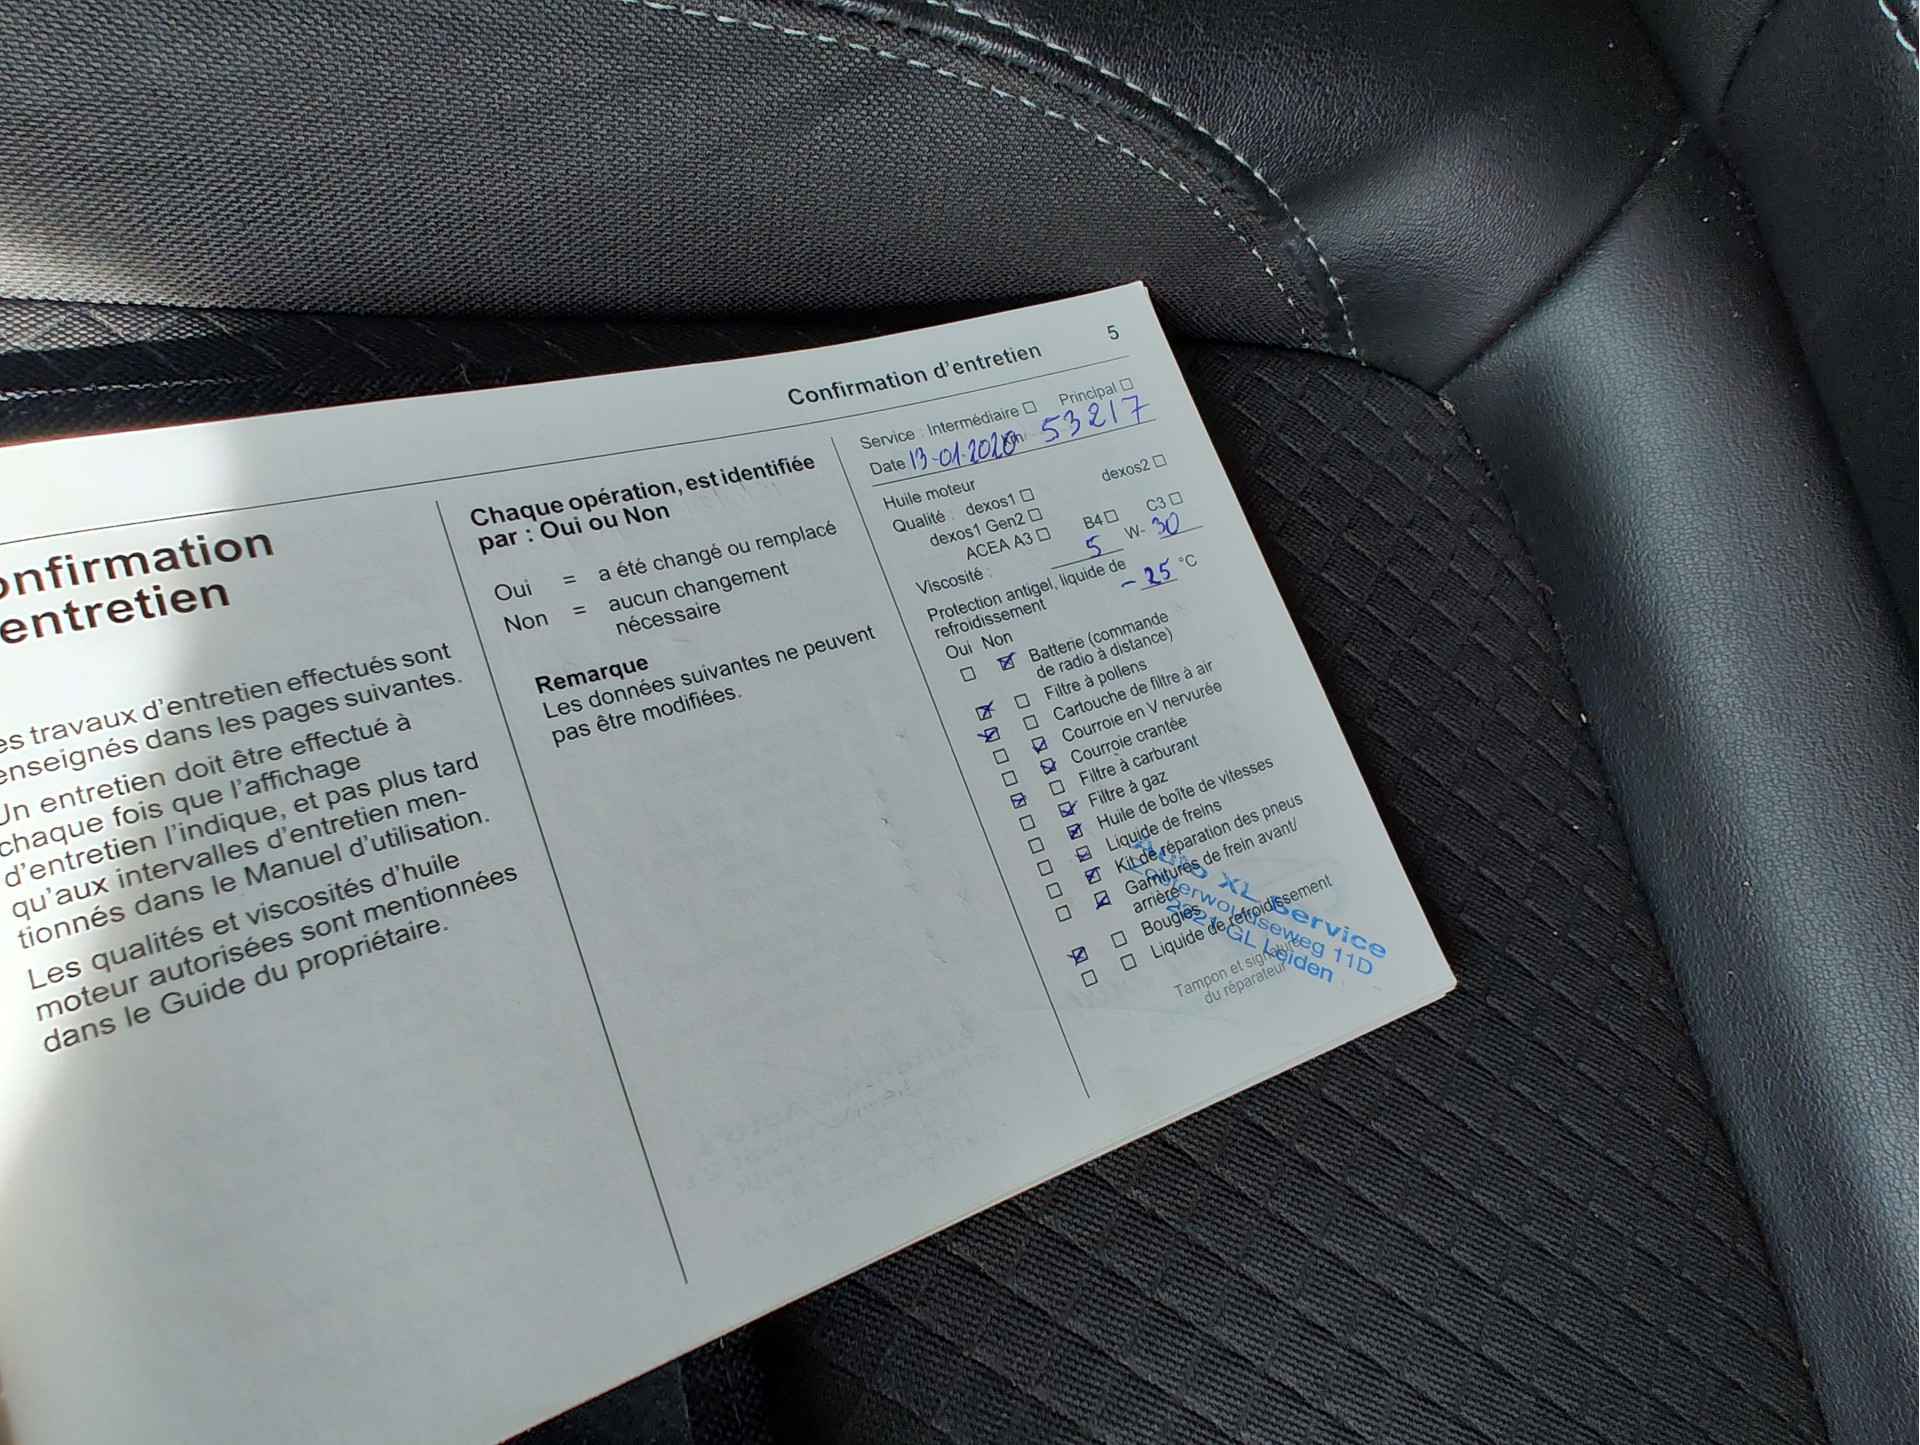 Confirmation d'entretien 5
onfirmation
entretien
es travaux d'entretien effectués sont
enseignés dans les pages suivantes.
Un entretien doit être effectué à
chaque fois que l'affichage
d'entretien l'indique, et pas plus tard
qu'aux intervalles d'entretien men-
tionnés dans le Manuel d'utilisation.
Les qualités et viscosités d'huile
moteur autorisées sont mentionnées
dans le Guide du propriétaire.
Chaque opération, est identifiée
par : Oui ou Non
Oui = a été changé ou remplacé
Non = aucun changement
nécessaire
Remarque
Les données suivantes ne peuvent
pas être modifiées.
Service : Intermédiaire ☐ Principal ☐
Date 13-01-2020 km 53217
Huile moteur
Qualité : dexos1 ☐ dexos2 ☐
dexos1 Gen2 ☐
ACEA A3 ☐ B4 ☐ C3 ☐
Viscosité : 5 W- 30
Protection antigel, liquide de
refroidissement - 25 °C
Oui Non
☐ ☒ Batterie (commande
de radio à distance)
☒ ☐ Filtre à pollens
☒ ☐ Cartouche de filtre à air
☐ ☒ Courroie en V nervurée
☐ ☒ Courroie crantée
☒ ☐ Filtre à carburant
☐ ☒ Filtre à gaz
☐ ☒ Huile de boîte de vitesses
☐ ☒ Liquide de freins
☐ ☒ Kit de réparation des pneus
☐ ☒ Garnitures de frein avant/
arrière
☒ ☐ Bougies
☐ ☐ Liquide de refroidissement
Tampon et signature
du réparateur
Auto XL Service
11D
GL Leiden